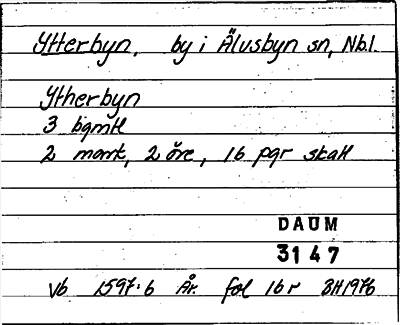 Ytterbyn, by i Älvsbyn sn, Nbl.
Ytherbyn
3 bgmtl
2 mark, 2 öre, 16 pgr skatt
DAUM
3147
Vb 1597:6 År. fol 16r BH1976